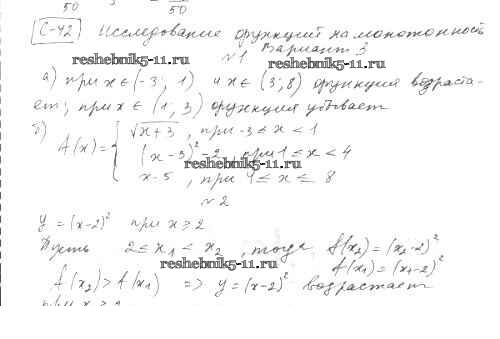 50 50
С-42 Исследование функций на монотонность
reshebnik5-11.ru
№1 Вариант 3
а) при x ∈ (-3; 1) и x ∈ (3; 8) функция возраста-
ет; при x ∈ (1; 3) функция убывает
б) f(x) = { √x+3, при -3 ≤ x < 1
(x-3)²-2, при 1 ≤ x < 4
reshebnik5-11.ru
x-5, при 4 ≤ x ≤ 8
№2
reshebnik5-11.ru
y = (x-2)² при x ≥ 2
Пусть 2 ≤ x₁ < x₂, тогда f(x₂) = (x₂-2)²
f(x₁) = (x₁-2)²
reshebnik5-11.ru
f(x₂) > f(x₁) => y = (x-2)² возрастает
при x ≥